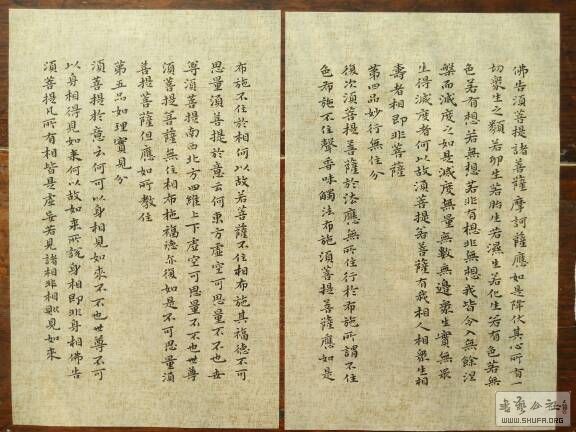 佛告須菩提諸菩薩摩訶薩應如是降伏其心所有一
切眾生之類若卵生若胎生若濕生若化生若有色若無
色若有想若無想若非有想非無想我皆令入無餘涅
槃而滅度之如是滅度無量無數無邊眾生實無眾
生得滅度者何以故須菩提若菩薩有我相人相眾生相
壽者相即非菩薩
第四品妙行無住分
復次須菩提菩薩於法應無所住行於布施所謂不住
色布施不住聲香味觸法布施須菩提菩薩應如是
布施不住於相何以故若菩薩不住相布施其福德不可
思量須菩提於意云何東方虛空可思量不不也世
尊須菩提南西北方四維上下虛空可思量不不也世尊
須菩提菩薩無住相布施福德亦復如是不可思量須
菩提菩薩但應如所教住
第五品如理實見分
須菩提於意云何可以身相見如來不不也世尊不可
以身相得見如來何以故如來所說身相即非身相佛告
須菩提凡所有相皆是虛妄若見諸相非相則見如來
WWW.SHUFA.ORG